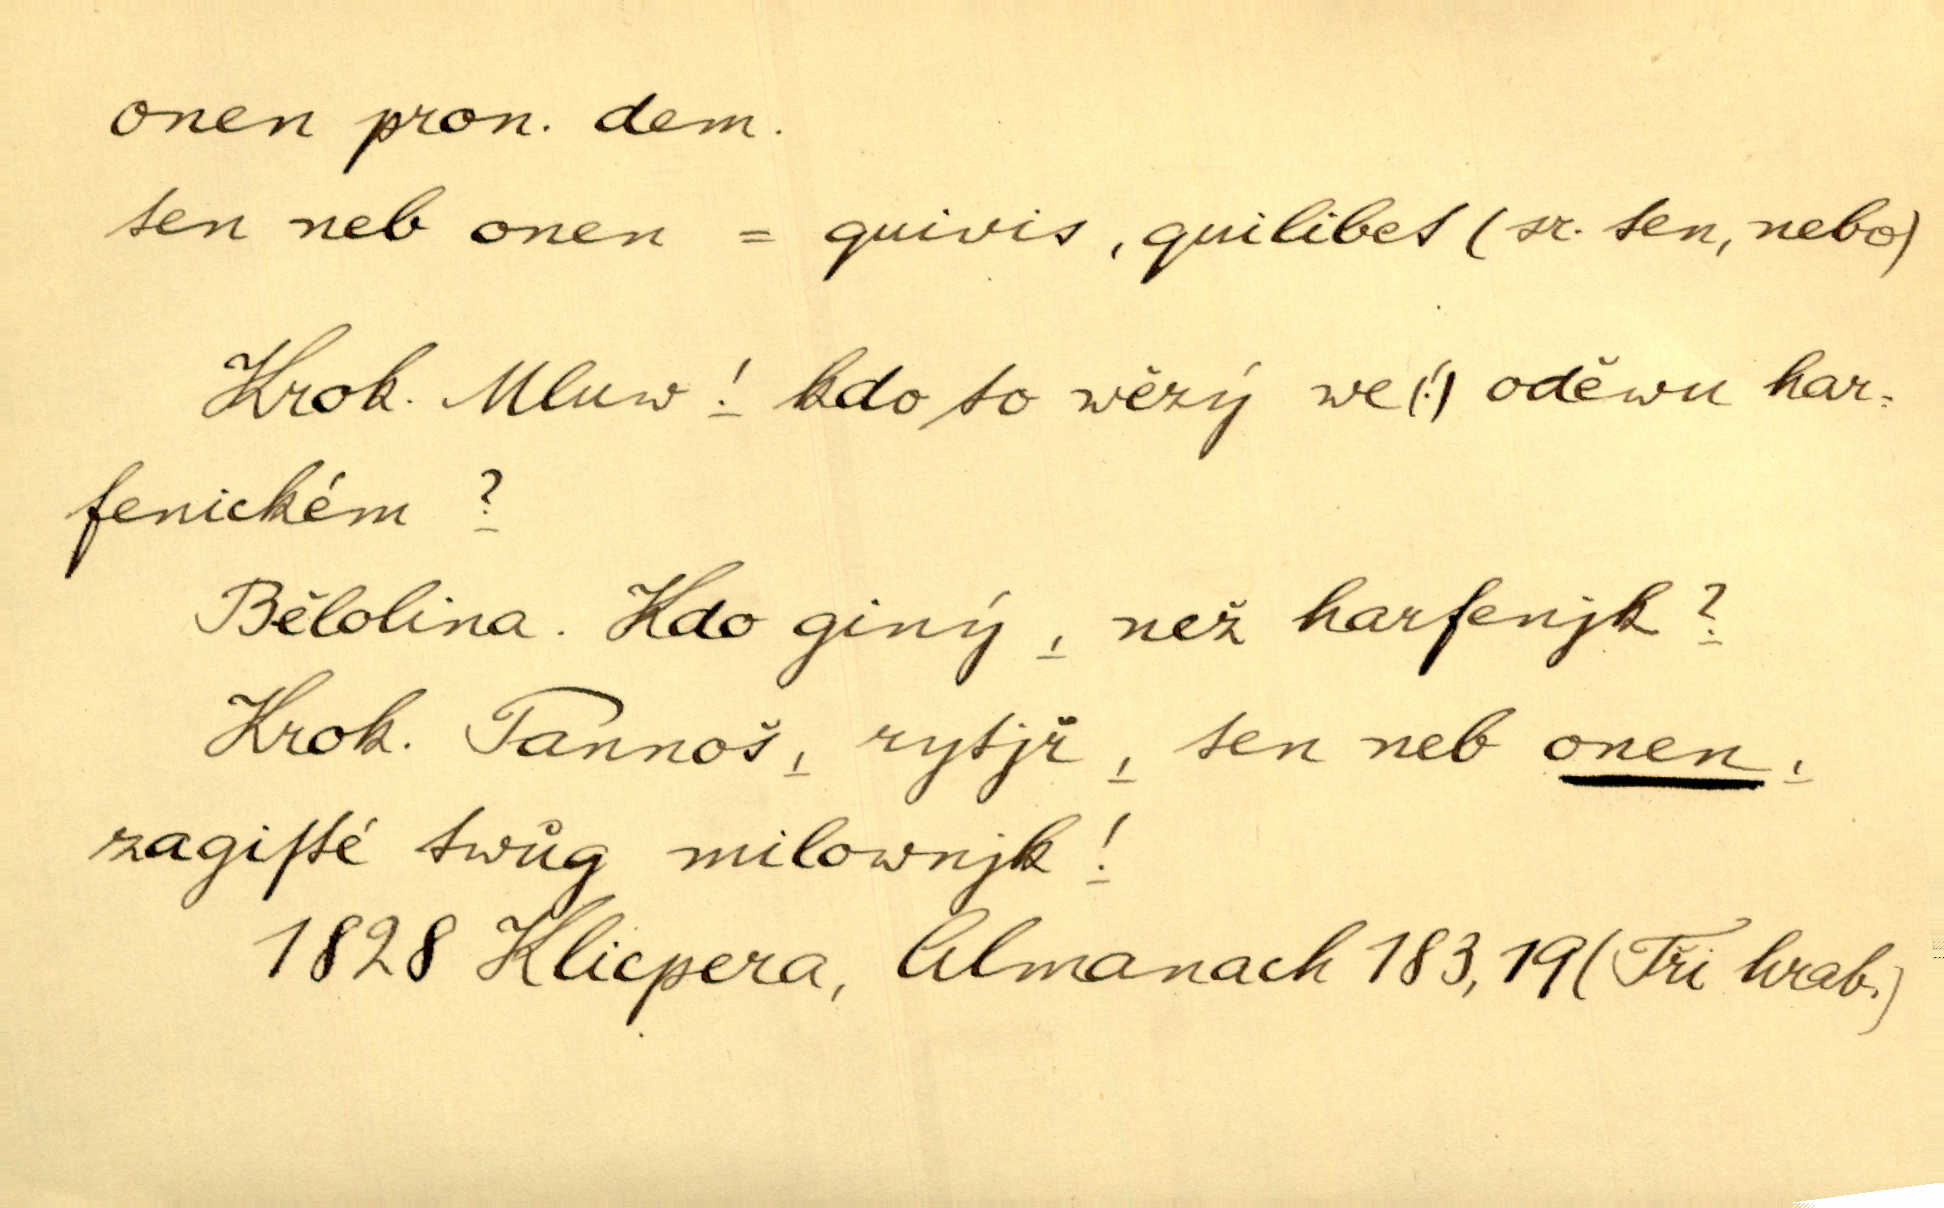 onen pron. dem.
ten neb onen = quivis, quilibet (sr. ten, nebo)
Krok. Mluw! kdo to wězý we(!) oděwu har=
fenickém?
Bělolina. Kdo giný, než harfenjk?
Krok. Tannoš, rytjř, ten neb onen,
zagiſté twůg milownjk!
1828 Klicpera, Almanach 183, 19 (Tři hrab.)